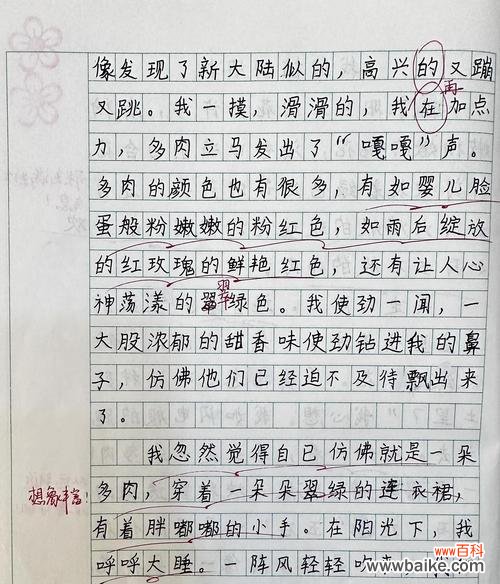 像发现了新大陆似的，高兴的又蹦
再
又跳。我一摸，滑滑的，我在加点
力，多肉立马发出了“嘎嘎”声。
多肉的颜色也有很多，有如婴儿脸
蛋般粉嫩嫩的粉红色，如雨后绽放
的红玫瑰的鲜艳红色，还有让人心
翠
神荡漾的翠绿色。我使劲一闻，一
大股浓郁的甜香味使劲钻进我的鼻
子，仿佛他们已经迫不及待飘出来
了。
我忽然觉得自己仿佛就是一朵
想象丰富！
多肉，穿着一朵朵翠绿的连衣裙，
有着胖嘟嘟的小手。在阳光下，我
呼呼大睡。一阵风轻轻吹来，我
www.百科
www.baike.com